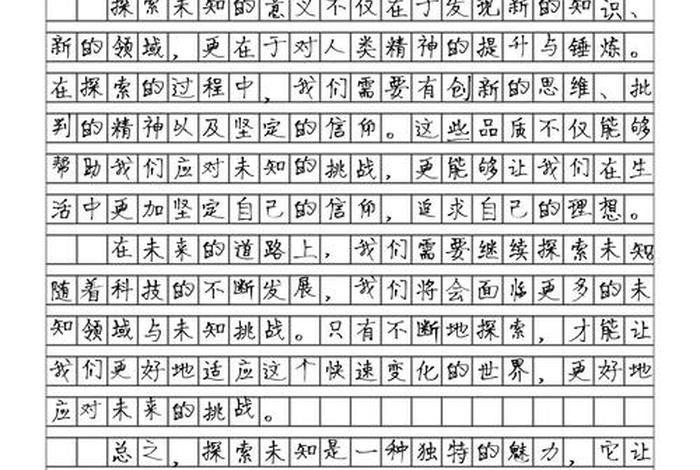 探索未知的意义不仅在于发现新的知识、
新的领域，更在于对人类精神的提升与锤炼。
在探索的过程中，我们需要有创新的思维、批
判的精神以及坚定的信仰。这些品质不仅能够
帮助我们应对未知的挑战，更能够让我们在生
活中更加坚定自己的信仰，追求自己的理想。
在未来的道路上，我们需要继续探索未知
随着科技的不断发展，我们将会面临更多的未
知领域与未知挑战。只有不断地探索，才能让
我们更好地适应这个快速变化的世界，更好地
应对未来的挑战。
总之，探索未知是一种独特的魅力，它让